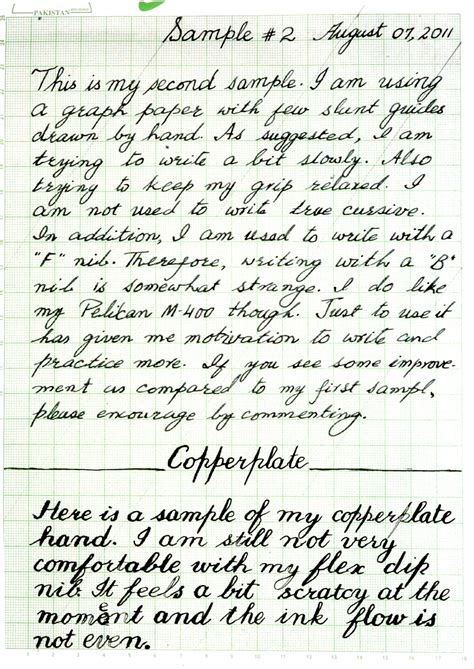 PAKISTAN
Sample #2 August 07, 2011
This is my second sample. I am using
a graph paper with few slant guides
drawn by hand. As suggested, I am
trying to write a bit slowly. Also
trying to keep my grip relaxed. I
am not used to write true cursive.
In addition, I am used to write with a
"F" nib. Therefore, writing with a "B"
nib is somewhat strange. I do like
my Pelican M-400 though. Just to use it
has given me motivation to write and
practice more. If you see some improve-
ment as compared to my first sampl,
please encourage by commenting.
Copperplate
Here is a sample of my copperplate
hand. I am still not very
comfortable with my flex dip
nib. It feels a bit scratcy at the
moment and the ink flow is
not even.